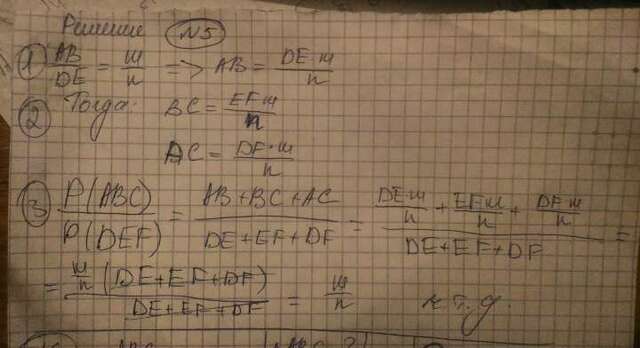 Решение №5
1 AB/DE = m/n => AB = DE·m/n
2 Тогда: BC = EF·m/n
AC = DF·m/n
3 P(ABC)/P(DEF) = (AB+BC+AC)/(DE+EF+DF) = (DE·m/n + EF·m/n + DF·m/n)/(DE+EF+DF) =
= m/n (DE+EF+DF)/(DE+EF+DF) = m/n ч.т.д.